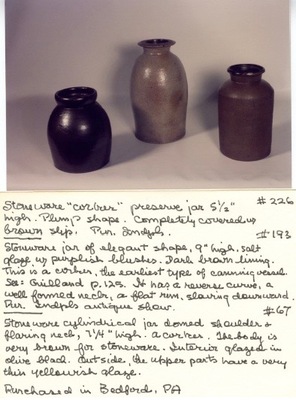 Stoneware "corker" preserve jar 5½" #226
high. Plump shape. Completely covered w
brown slip. Pur. Indpls.
#193
Stoneware jar of elegant shape, 9" high. Salt
glaze w purplish blushes. Dark brown lining.
This is a corker, the earliest type of canning vessel.
See: Guilland p. 125. It has a reverse curve, a
well formed neck, a flat rim, slanting downward.
Pur. Indpls antique show.
#67
Stoneware cylindrical jar domed shoulder &
flaring neck, 7¼" high. a corker. The body is
very brown for stoneware. Interior glazed in
olive black. Outside, the upper parts have a very
thin yellowish glaze.
Purchased in Bedford, PA